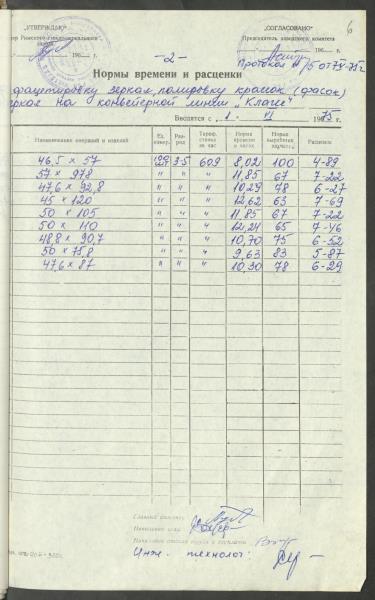 „УТВЕРЖДАЮ“ „СОГЛАСОВАНО“ 6
Председатель заводского комитета
196 г. 196 г.
— 2 —
Протокол
Нормы времени и расценки
фацетировку зеркал, полировку кромок (фасок)
зеркал на конвейерной линии „Клаге“
Вводятся с „ 1 “ VI 1975 г.
Наименование операций и изделий Ед. измер. Разряд Тариф. ставка на час Норма времени в часах Норма выработки Расценка
46,5 × 57 3-5 609 8,02 100 4-89
57 × 97,8 " " " 11,85 67 7-22
47,6 × 92,8 " " " 10,29 78 6-27
45 × 120 " " " 12,62 63 7-69
50 × 105 " " " 11,85 67 7-22
50 × 110 " " " 12,24 65 7-46
48,8 × 90,7 " " " 10,70 75 6-52
50 × 75,8 " " " 9,63 83 5-87
47,6 × 87 " " " 10,30 78 6-29
Главный инженер
Начальник цеха
Начальник отдела труда и зарплаты
Инж. технолог: